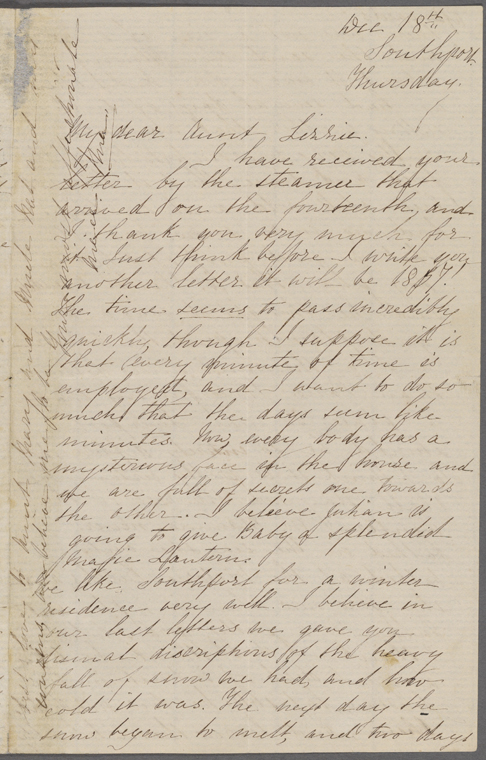 Dec 18th
Southport
Thursday.
My dear Aunt Lizzie.
I have received your
letter by the steamer that
arrived on the fourteenth, and
I thank you very much for
it. Just think before I write you
another letter it will be 1857.
The time seems to pass incredibly
quickly, though I suppose it is
that every minute of time is
employed, and I want to do so
much that the days seem like
minutes. Now, every body has a
mysterious face in the house and
we are full of secrets one towards
the other. I believe Julian is
going to give Baby a splendid
Magic Lantern.
We like Southport for a winter
residence very well. I believe in
our last letters we gave you
dismal discriptions of the heavy
fall of snow we had, and how
cold it was. The next day the
snow began to melt, and two days
love to Aunt Mary and Uncle Nat and
believe me to be your most affectionate
niece